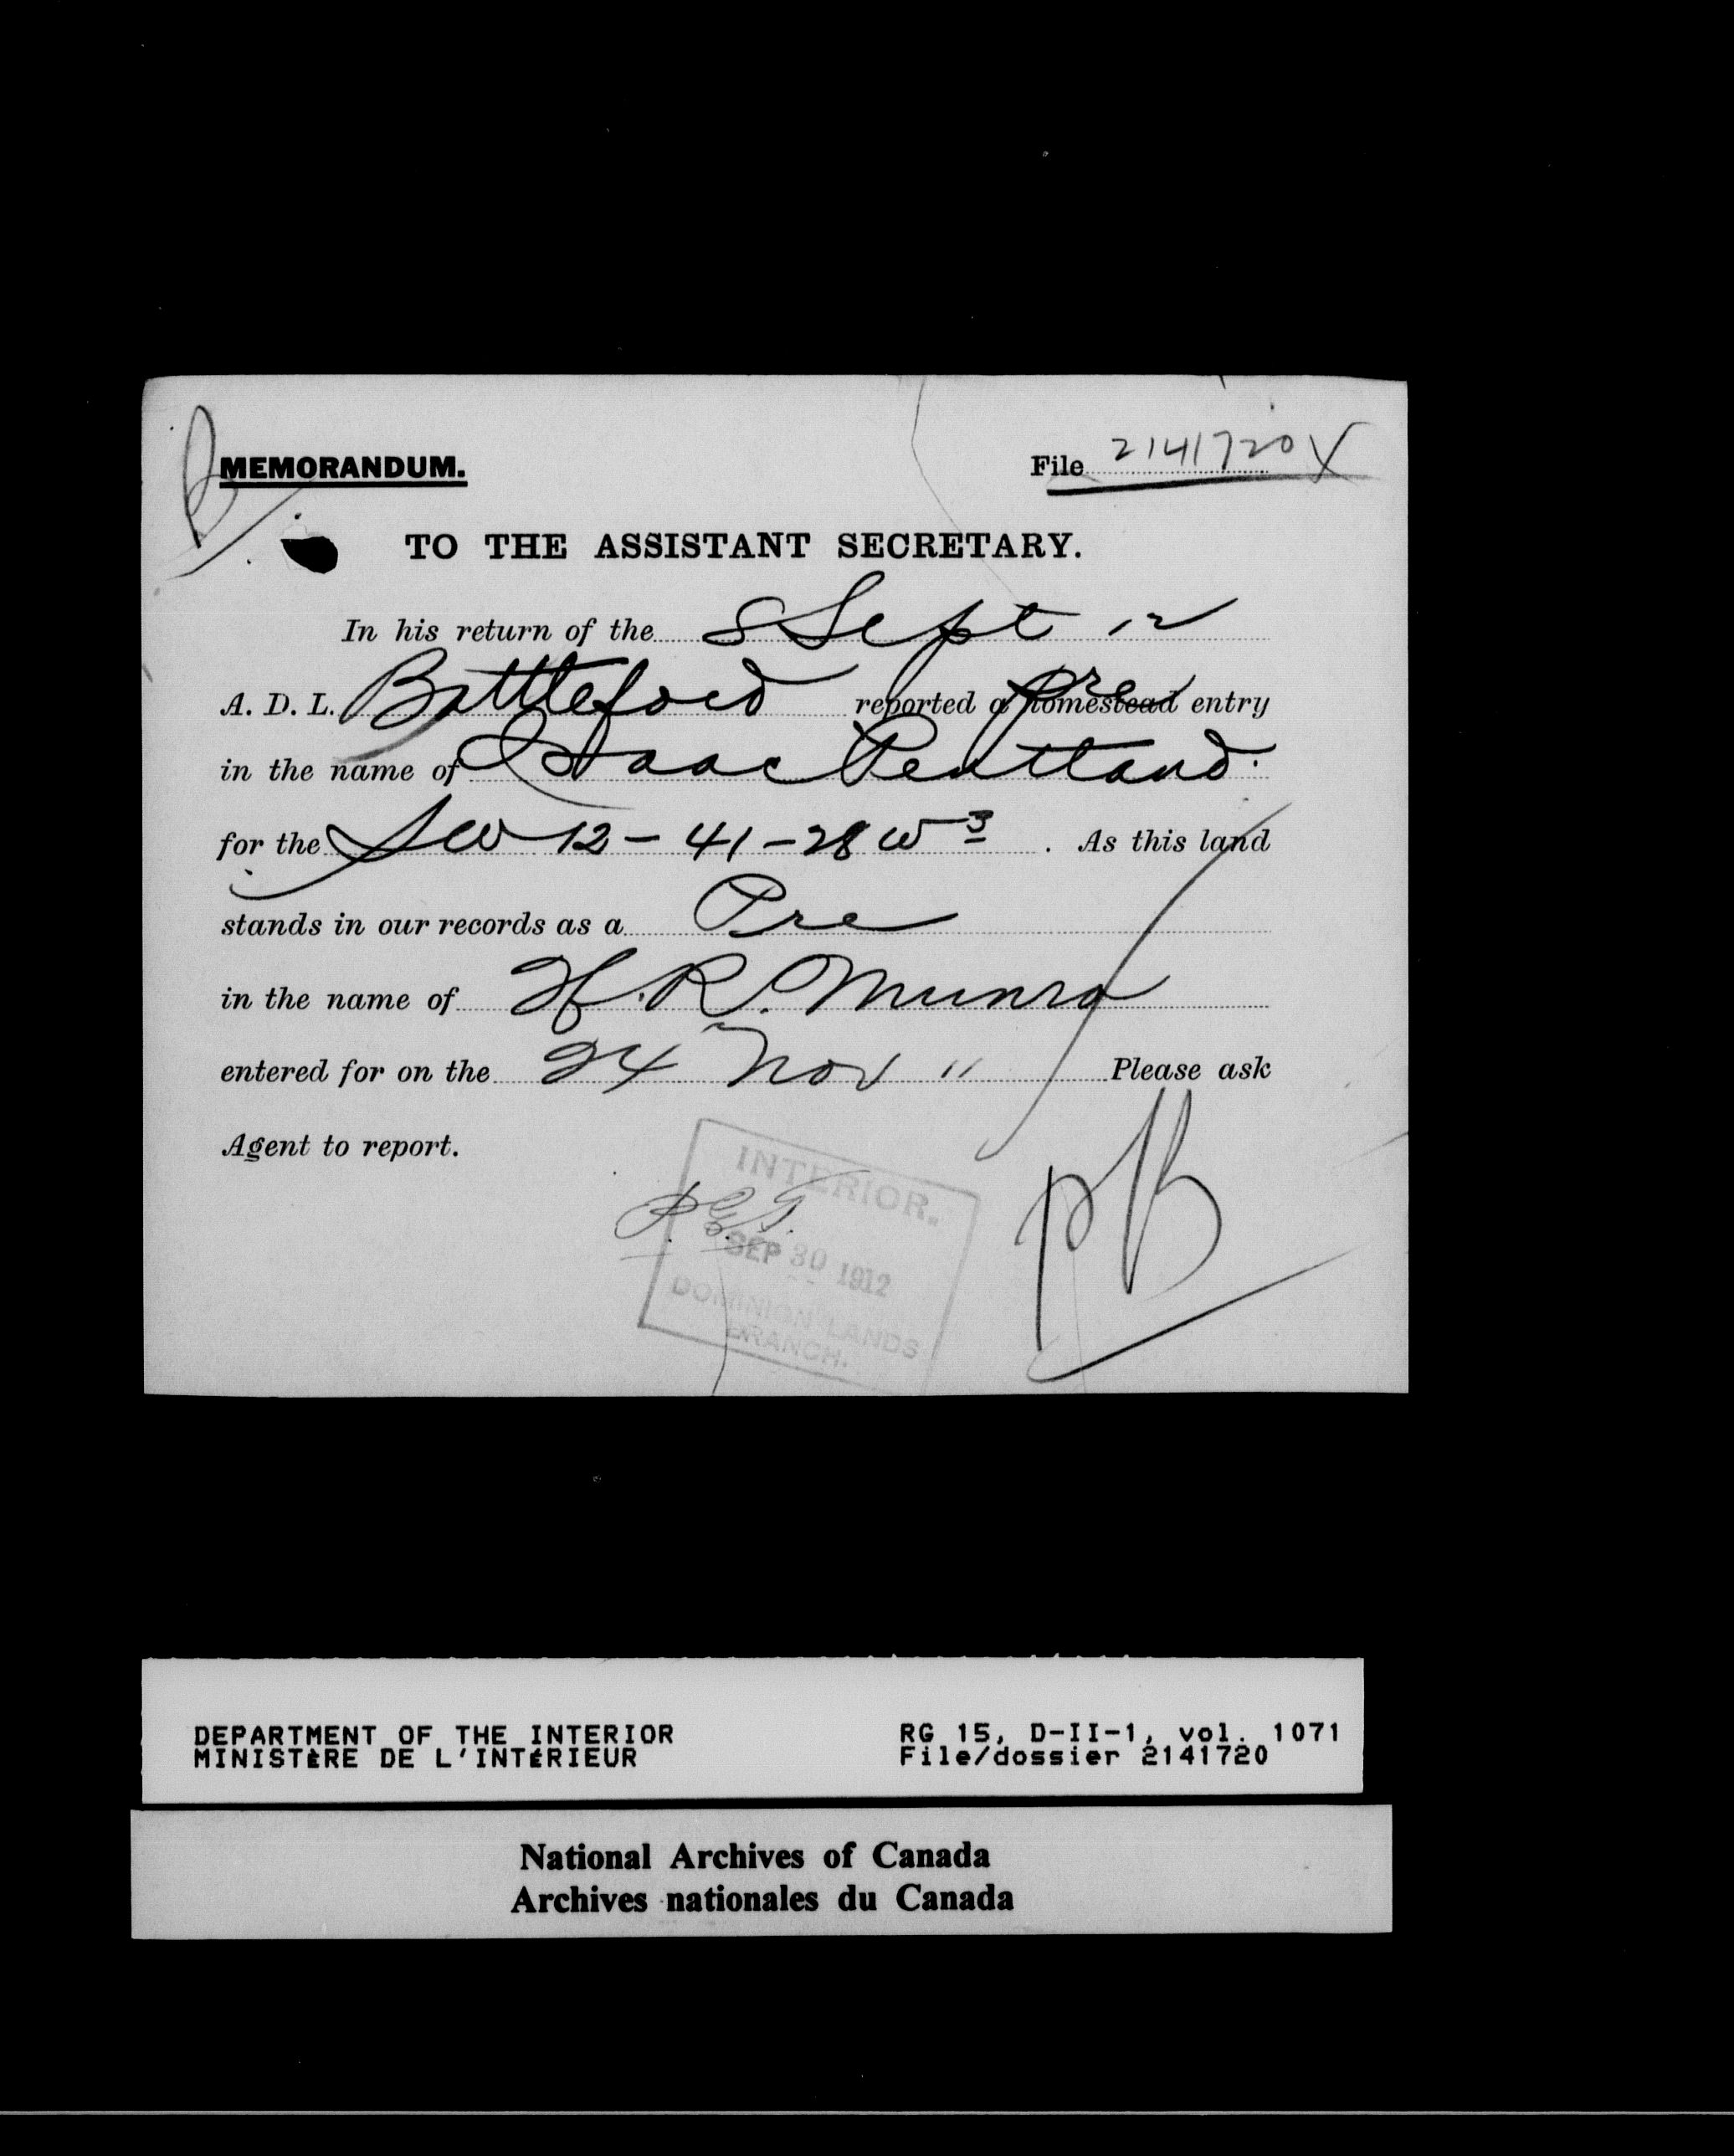 MEMORANDUM.
File 2141720
TO THE ASSISTANT SECRETARY.
In his return of the 8 Sept 12
A. D. L. Battleford reported a homestead pre entry
in the name of Isaac Pentland.
for the SW 12 - 41 - 28 W 3 . As this land
stands in our records as a Pre
in the name of H. R. Munro
entered for on the 24 Nov 11 Please ask
Agent to report.
INTERIOR.
SEP 30 1912
DOMINION LANDS
BRANCH.
DEPARTMENT OF THE INTERIOR
MINISTÈRE DE L'INTÉRIEUR
RG 15, D-II-1, vol. 1071
File/dossier 2141720
National Archives of Canada
Archives nationales du Canada